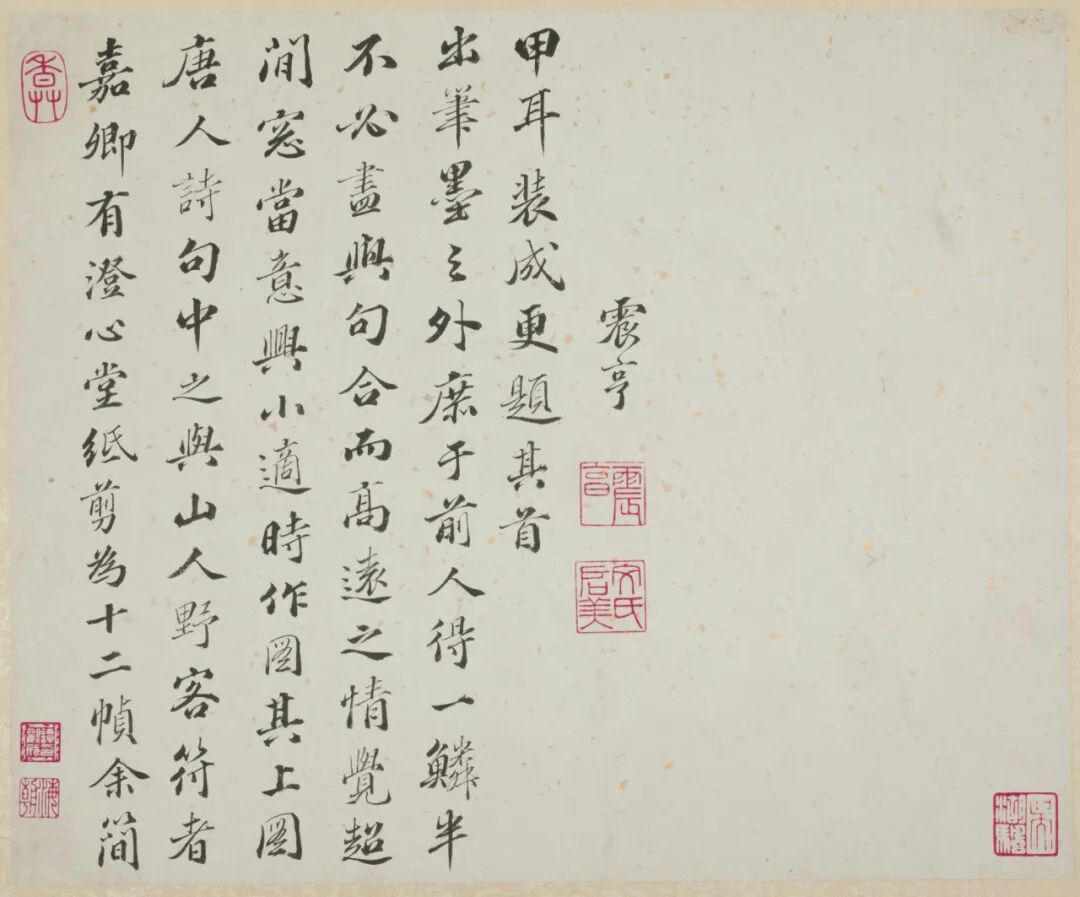 嘉卿有澄心堂紙剪為十二幀余簡
唐人詩句中之與山人野客符者
閒窓當意興小適時作圖其上圖
不必盡與句合而高遠之情覺超
出筆墨之外庶于前人得一鱗半
甲耳裝成更題其首
震亨
震亨
文氏启美
香艸